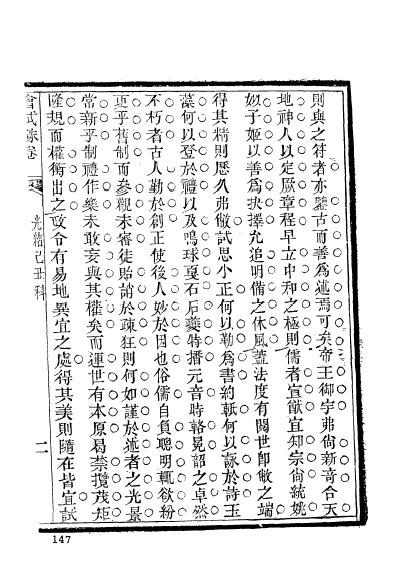 則與之符者亦鑒古而善爲述焉可矣帝王御宇弗尙新奇合天
地神人以定厥章程早立中和之極則儒者宣猷宜知宗尙統姚
姒子姬以善爲抉擇尤追明備之休風蓋法度有閱世卽敝之端
得其精則歷久弗敝試思小正何以勒爲書豹軧何以詠於詩玉
藻何以登於禮以及鳴球戛石后夔特播元音時輅冕韶之卓然
不朽者古人勤於創正使後人妙於因也俗儒自負聰明輒欲紛
更乎舊制而參觀未審徒貽誚於疎狂則何如謹於述者之光景
常新乎制禮作樂未敢妄與其權矣而運世有本原曷禁攬茂矩
隆規而權衡出之政令有易地異宜之處得其美則隨在皆宜試
會試硃卷
光緒己丑科
二
147